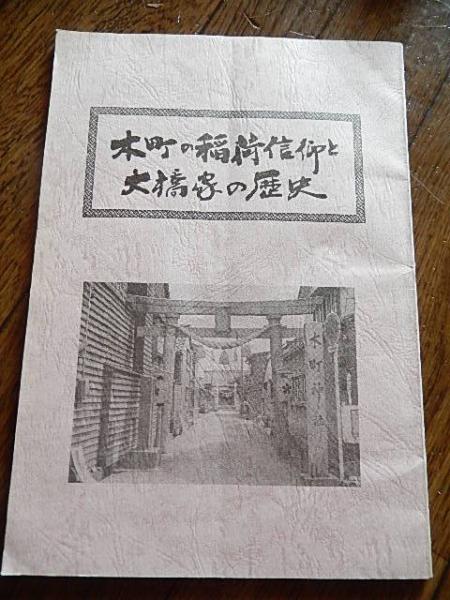 木町の稲荷信仰と
大橋家の歴史
木町神社